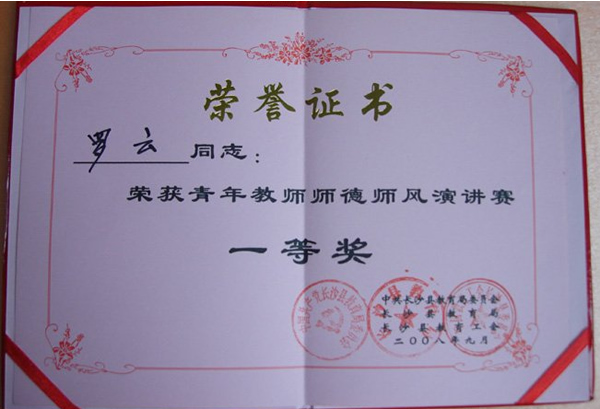 荣誉证书
罗云同志：
荣获青年教师师德师风演讲赛
一等奖
中共长沙县教育局委员会
长沙县教育局
长沙县教育工会
二00八年九月